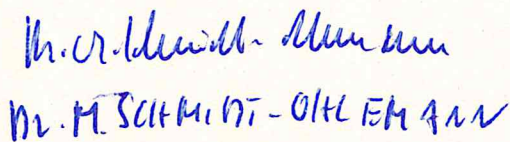 Dr. M. Schmidt-Ohlemann
DR. M. SCHMIDT-OHLEMANN